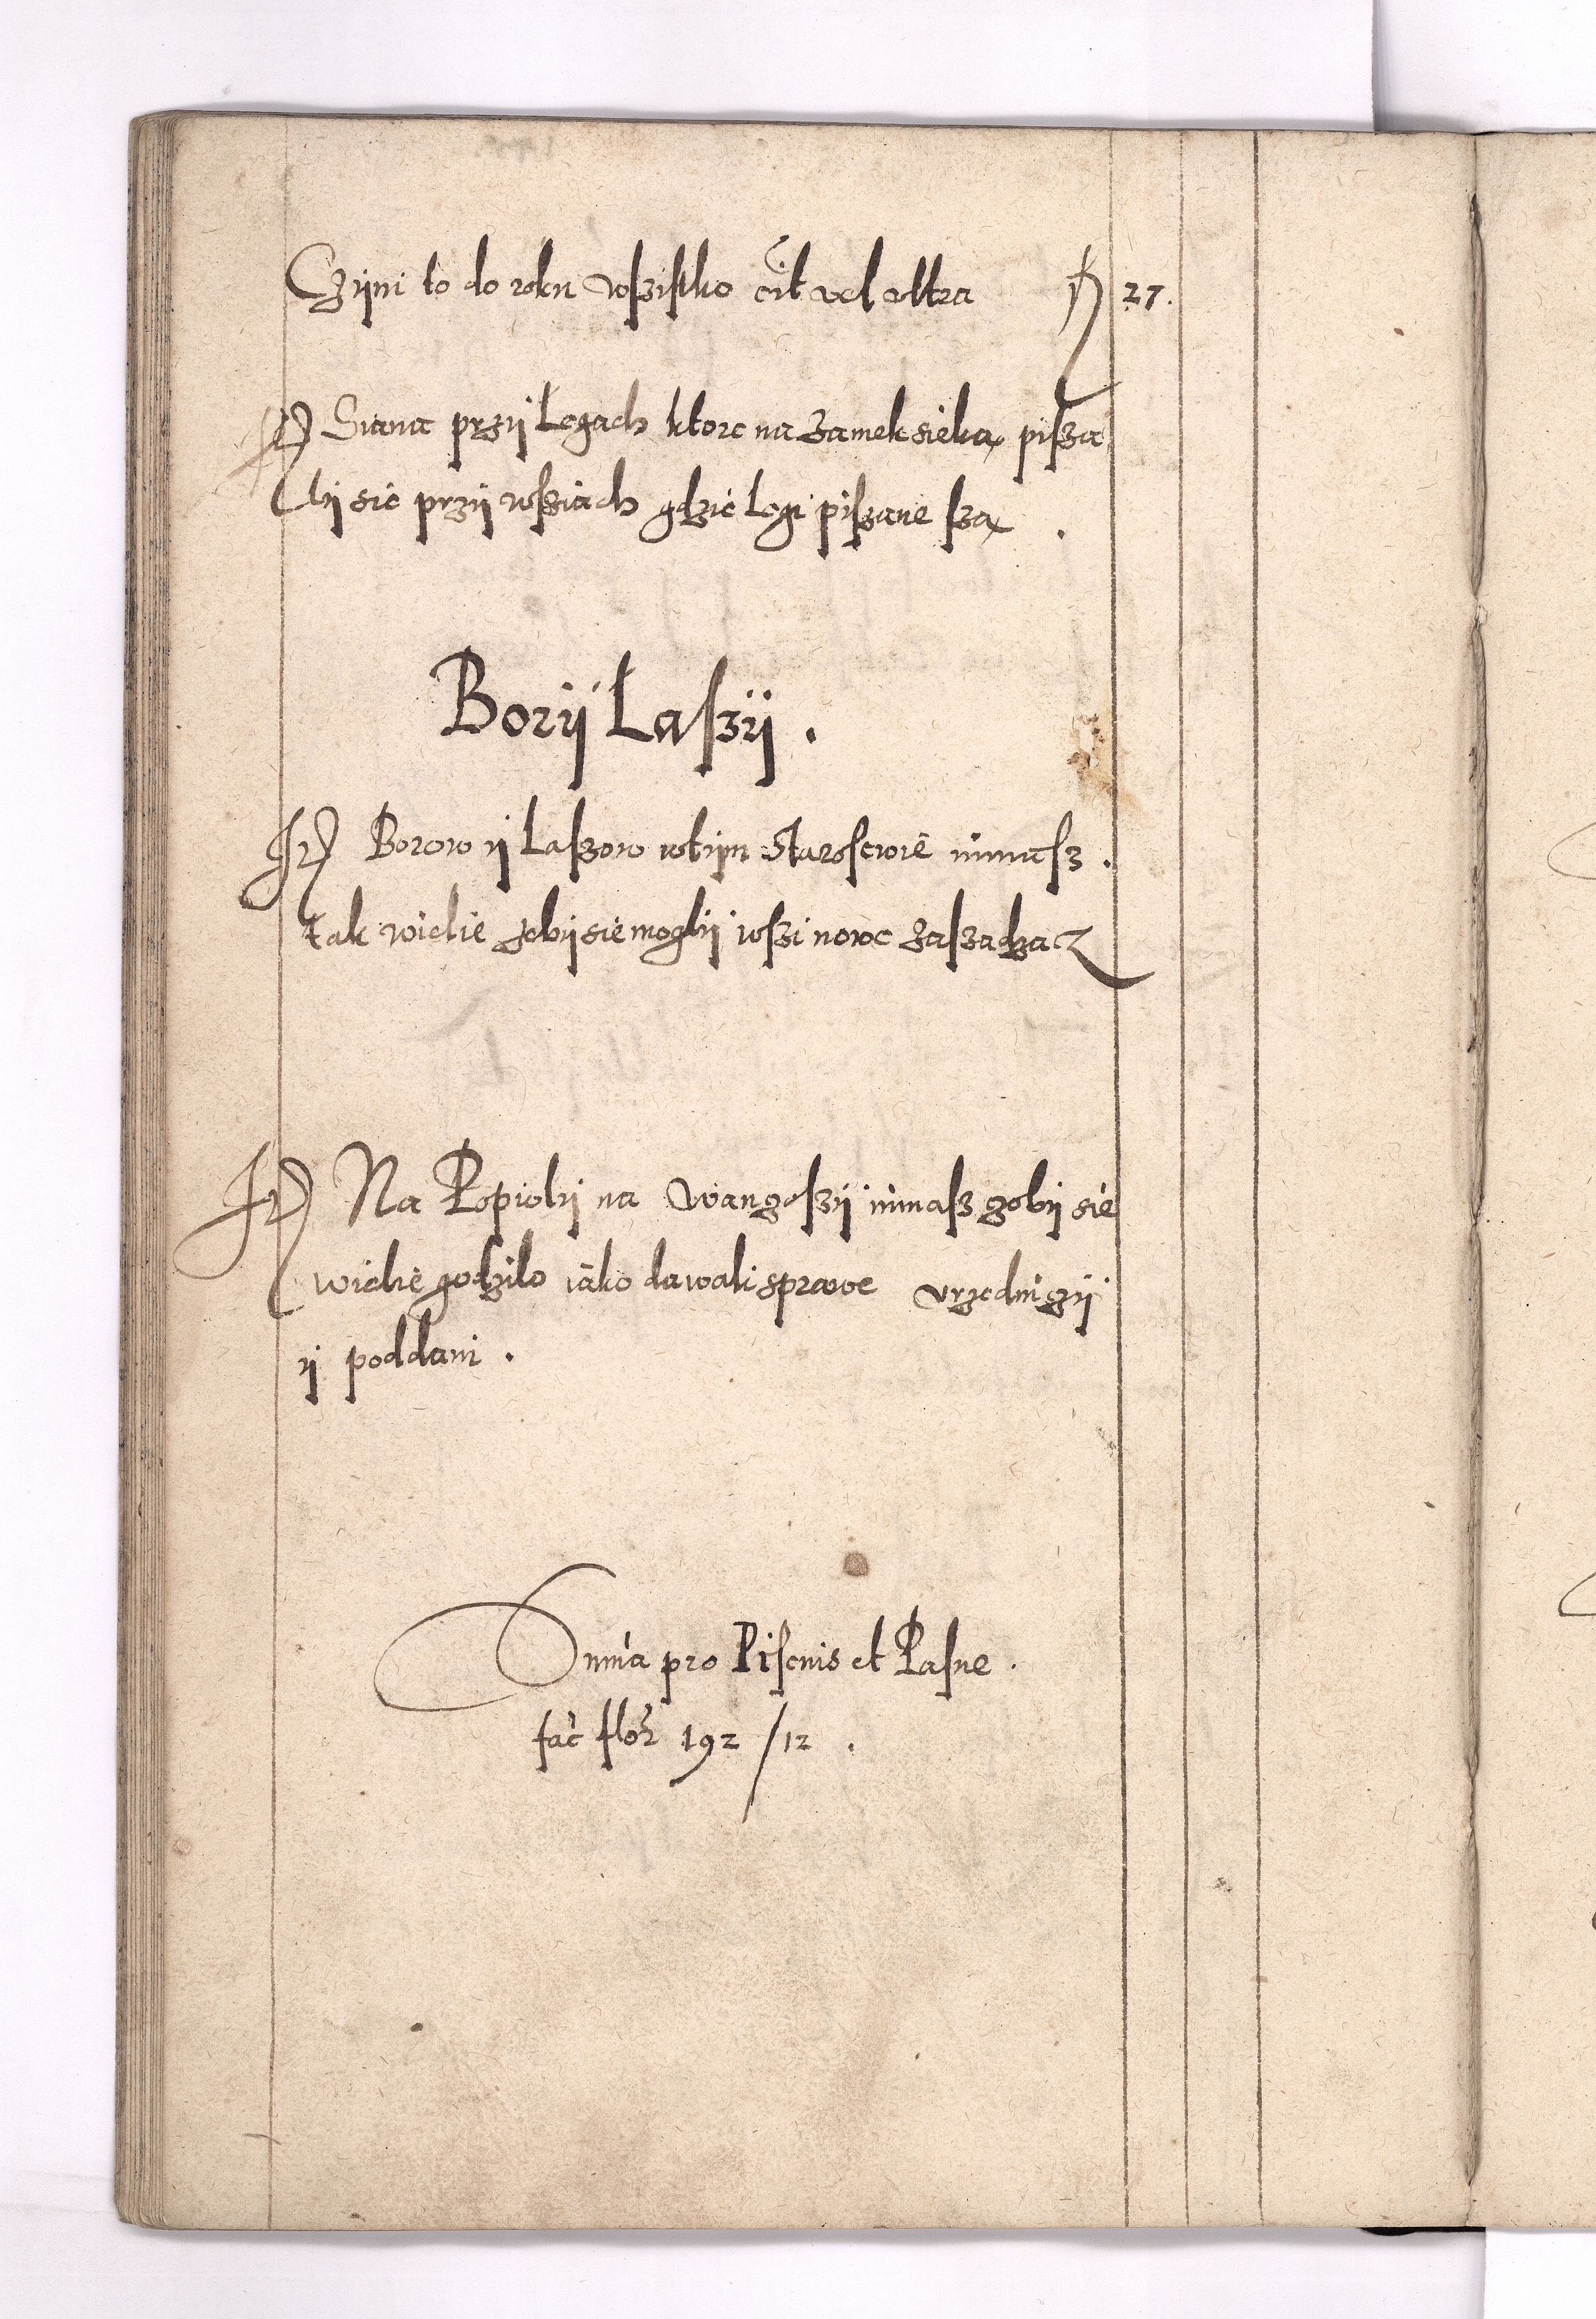 Czÿni to do roku wſziſtko cit vel vltra fl 27.
It Siana przÿ Logach ktore na zamek sieką piſzą
lÿ sie przÿ wſsiach gdzie Logi piſzane ſzą .
Borÿ Laſzÿ .
It Borow ÿ Laſzow wtÿm Staroſcwie nimaſz .
tak wielie zebÿ sie moglÿ wſzi nowe zaſzadzacz
It Na Popiolÿ na wangeſzÿ nimaſz zebÿ sie
wielie godzilo iako dawali sprawe vrzednizÿ
ÿ poddani .
Suma pro Piſcnis et Paſne .
fac flor 192 /12 .